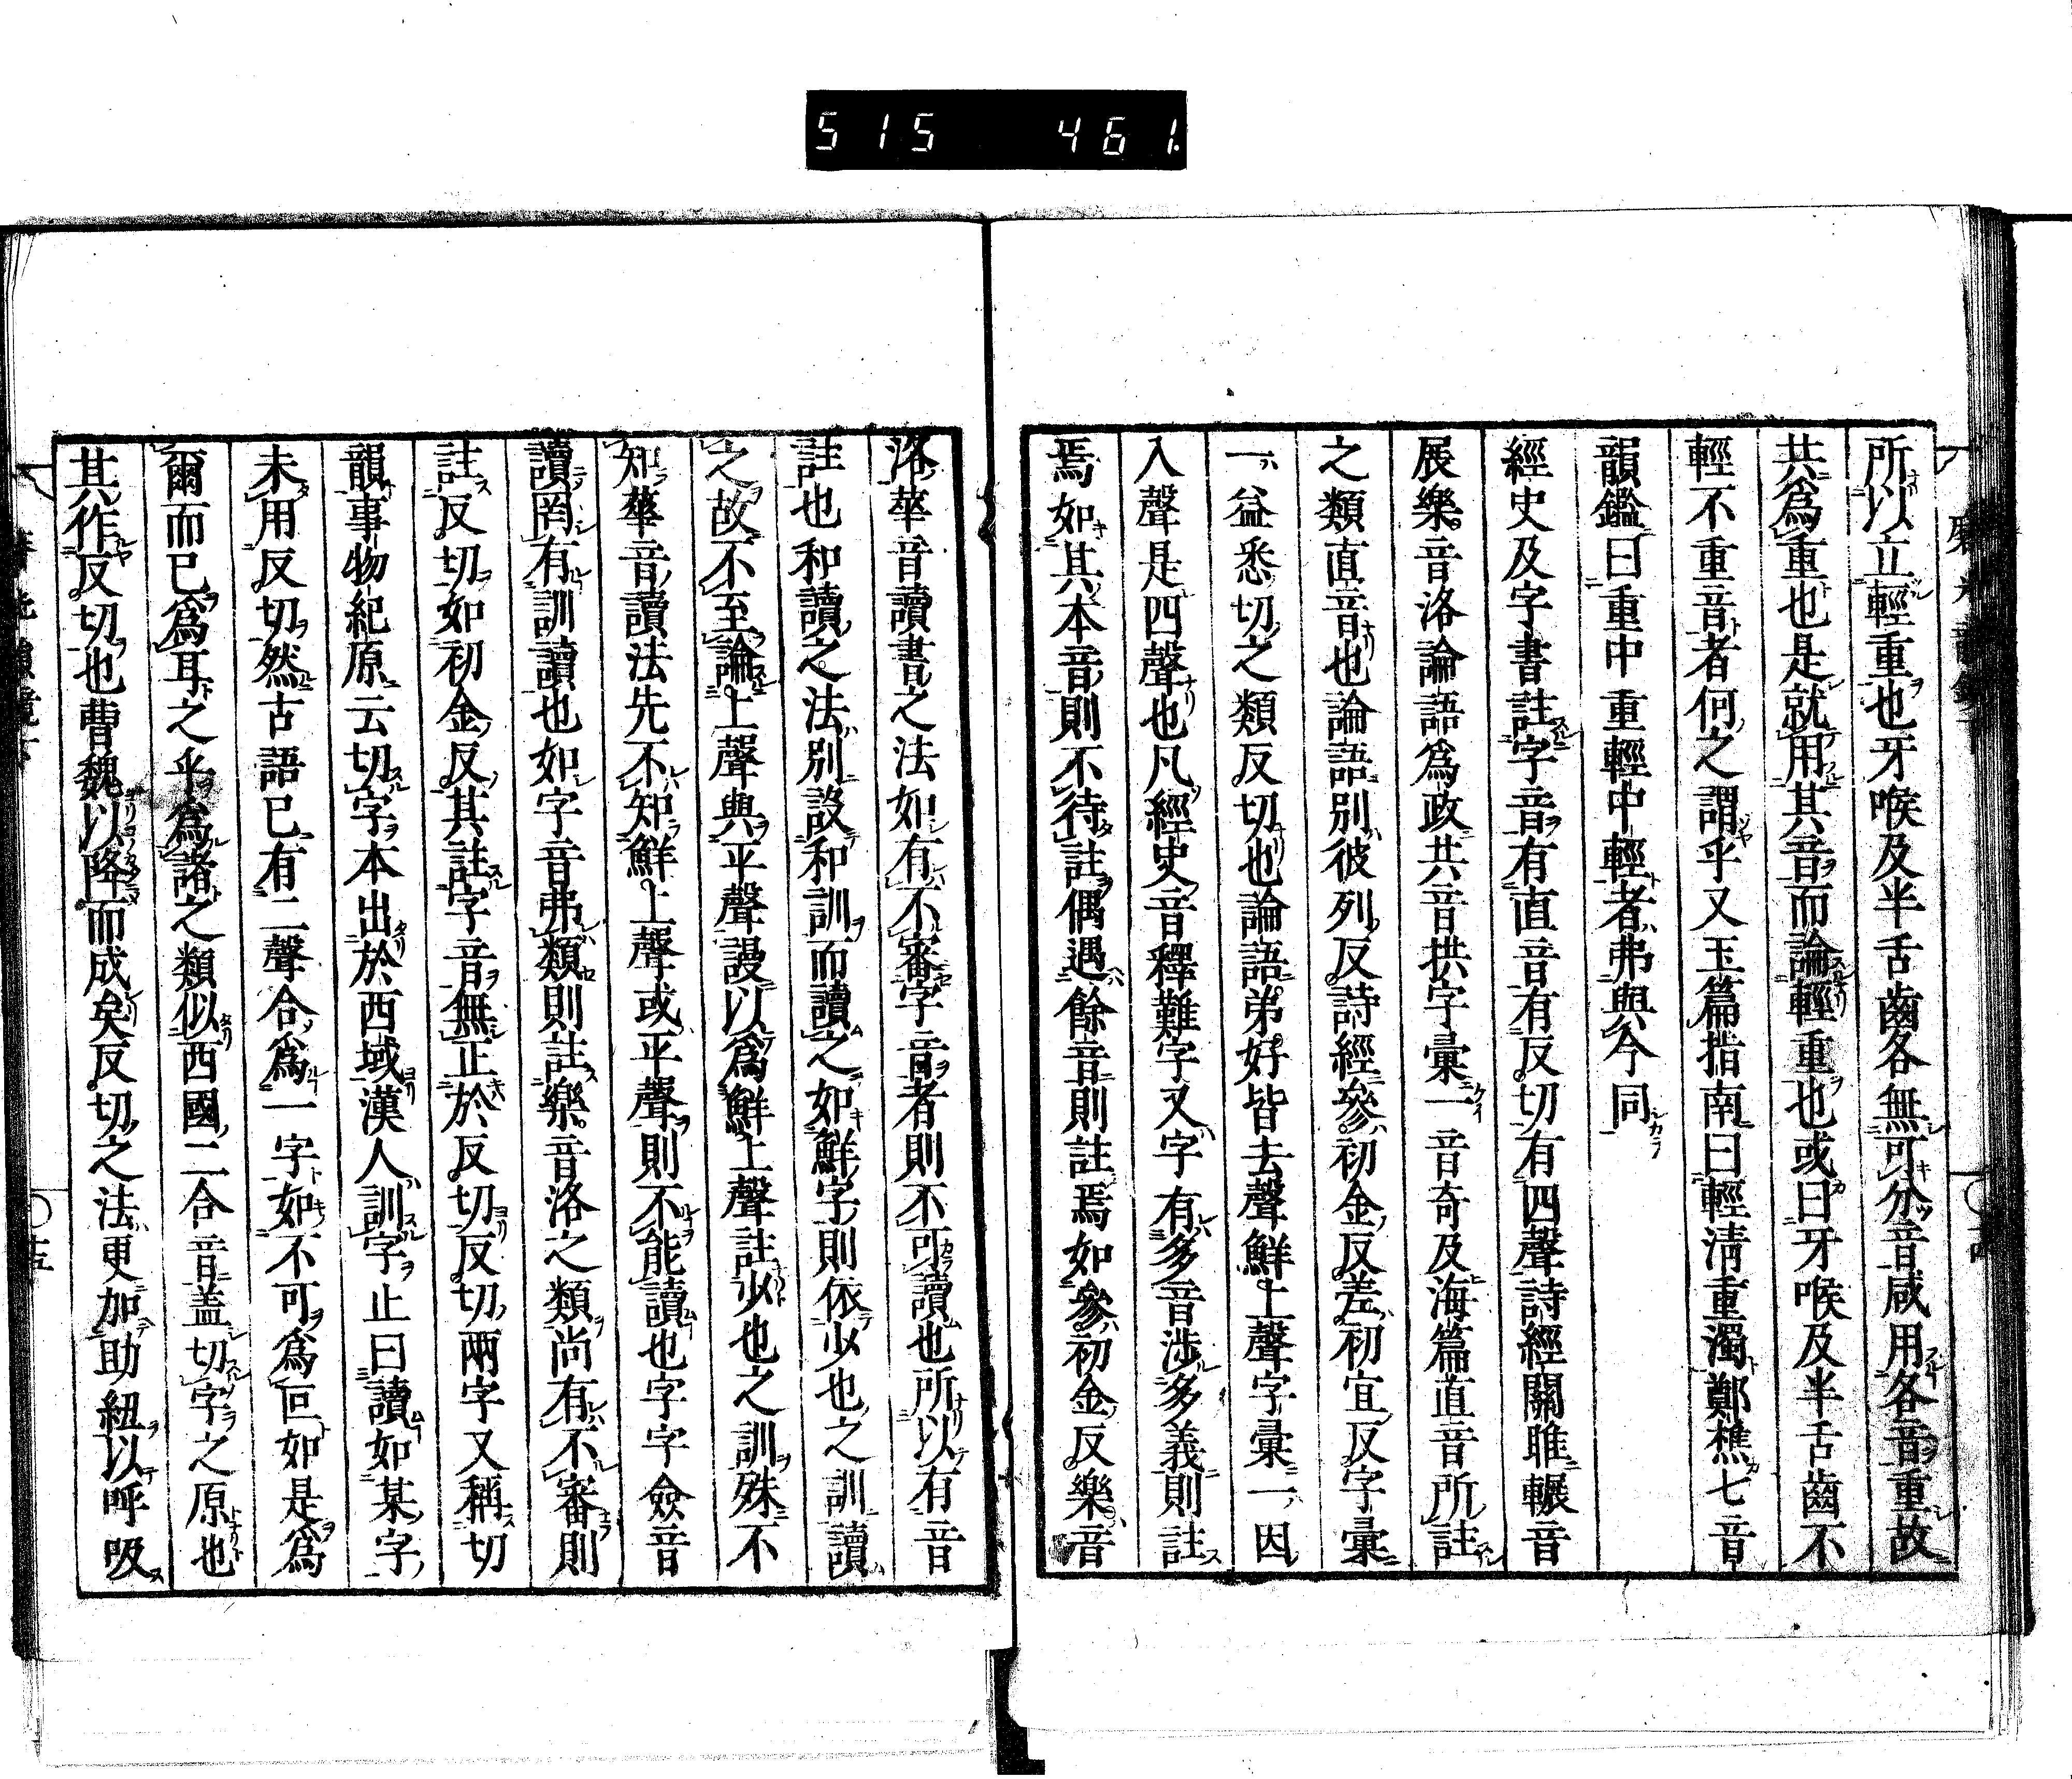 515 461
所以立輕重也牙喉及半舌齒各無可分音咸用各音重故
共爲重也是就用其音而論輕重也或曰牙喉及半舌齒不
輕不重音者何之謂乎又玉篇指南曰輕淸重濁鄭樵七音
韻鑑曰重中重輕中輕者弗與今同
經史及字書註字音有直音有反切有四聲詩經關雎輾音
展樂音洛論語爲政共音拱字彙一音奇及海篇直音所註
之類直音也論語別彼列反詩經參初金反差初宜反字彙
一益悉切之類反切也論語弟好皆去聲鮮上聲字彙一因
入聲是四聲也凡經史音釋難字又字有多音涉多義則註
焉如其本音則不待註偶遇餘音則註焉如參初金反樂音
洛華音讀書之法如有不審字音者則不可讀也所以有音
註也和讀之法別設和訓而讀之如鮮字則依少也之訓讀
之故不至論上聲與平聲謾以爲鮮上聲註少也之訓殊不
知華音讀法先不知鮮上聲或平聲則不能讀也字字僉音
讀罔有訓讀也如字音弗類則註樂音洛之類尚有不審則
註反切如初金反其註字音無正於反切反切兩字又稱切
韻事物紀原云切字本出於西域漢人訓字止曰讀如某字
未用反切然古語已有二聲合爲一字如不可爲叵如是爲
爾而已爲耳之乎爲諸之類似西國二合音蓋切字之原也
其作反切也曹魏以降而成矣反切之法更加助紐以呼吸